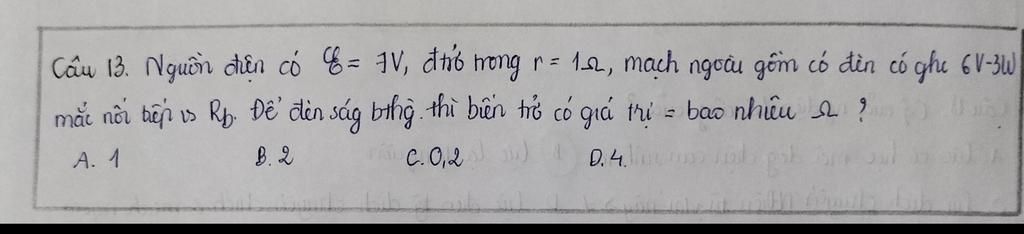 Câu 13. Nguồn điện có ℰ = 7V, đtrở trong r = 1Ω, mạch ngoài gồm có đèn có ghi 6V-3W
mắc nối tiếp vs Rb. Để đèn ság bthg. thì biến trở có giá trị = bao nhiêu Ω ?
A. 1 B. 2 C. 0,2 D. 4.